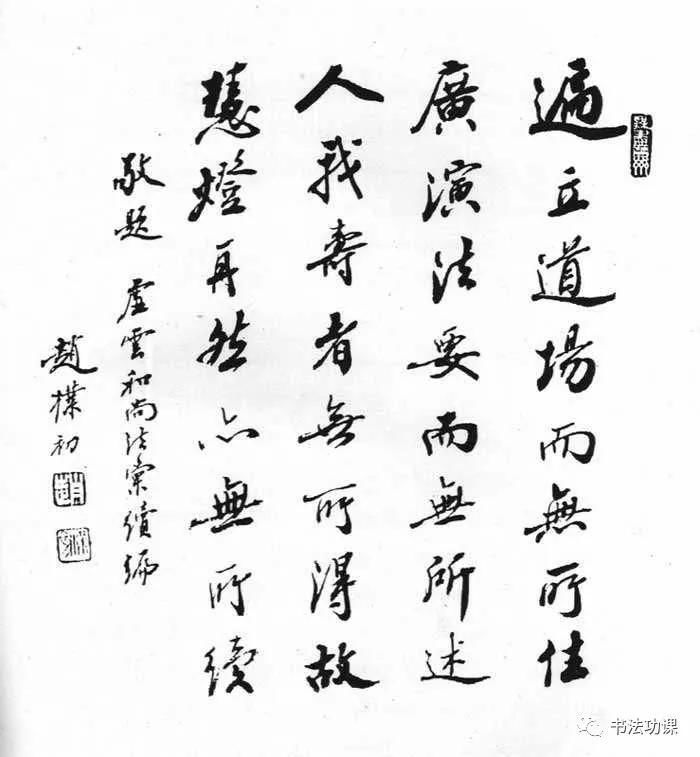 遍立道場而無所住
廣演法要而無所述
人我壽者無所得故
慧燈再然亦無所續
敬题 虛雲和尚法彙續编
趙樸初
书法功课